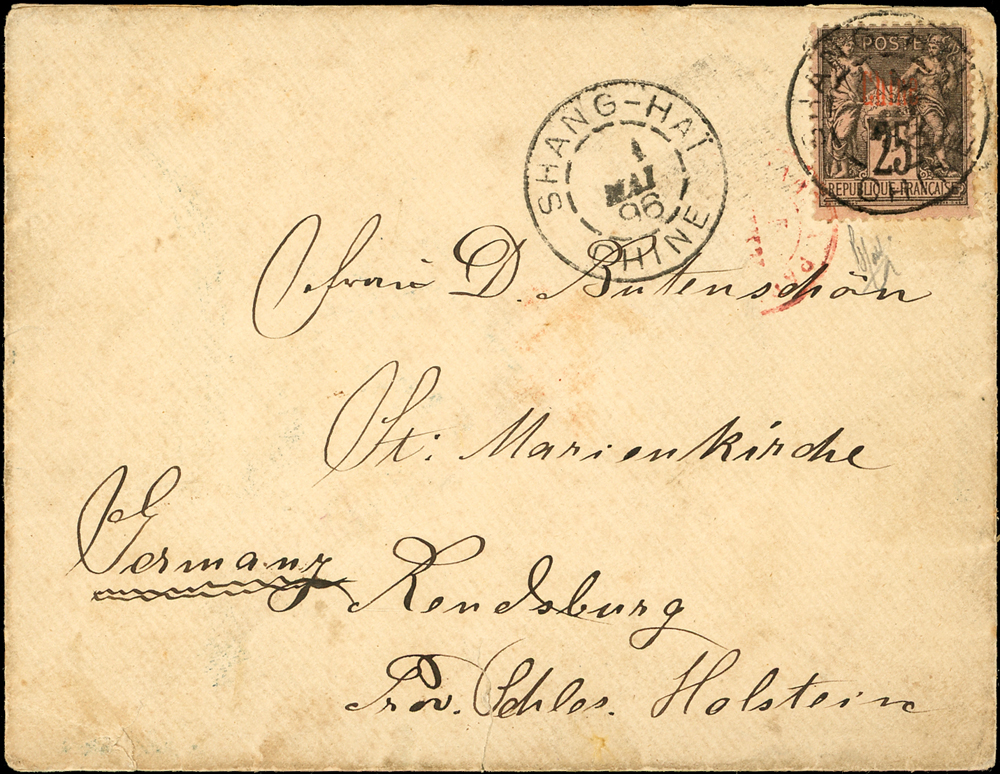 POSTE
Chine
25
REPUBLIQUE FRANCAISE
SHANG-HAÏ
1
MAI
96
CHINE
Frau D. Butenschön
St: Marienkirche
Germany
Rendsburg
Prov. Schles. Holstein